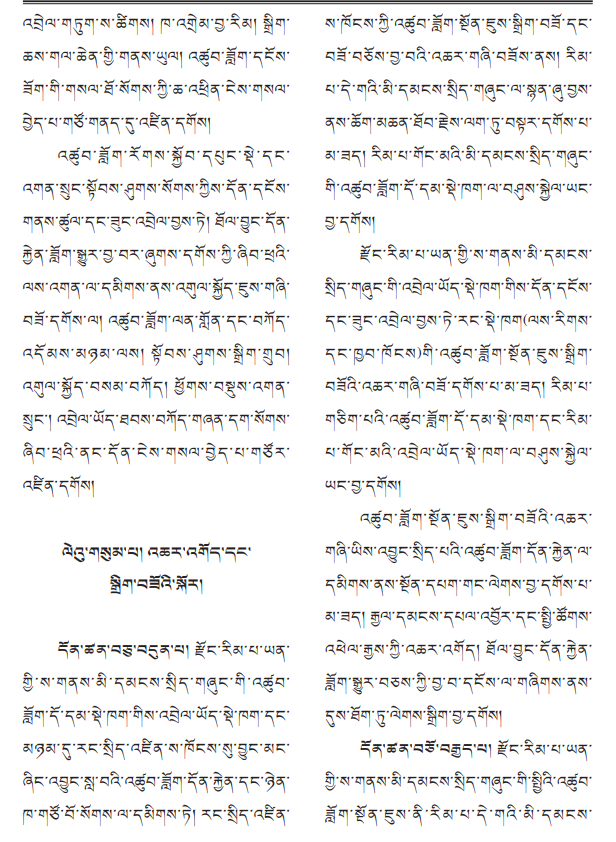 འབྲེལ་གཏུག་ས་ཚིགས། ཁ་འགྲེམ་བྱ་རིམ། སྒྲིག་
ཆས་གལ་ཆེན་གྱི་གནས་ཡུལ། འཚུབ་ཟློག་དངོས་
ཟོག་གི་གསལ་ཐོ་སོགས་ཀྱི་ཆ་འཕྲིན་ངེས་གསལ་
བྱེད་པ་གཙོ་གནད་དུ་འཛིན་དགོས།
འཚུབ་ཟློག་རོགས་སྐྱོབ་དཔུང་སྡེ་དང་
འགན་སྲུང་སྟོབས་ཤུགས་སོགས་ཀྱིས་དོན་དངོས་
གནས་ཚུལ་དང་ཟུང་འབྲེལ་བྱས་ཏེ། ཐོལ་བྱུང་དོན་
རྐྱེན་ཟློག་སྒྱུར་བྱ་བར་ཞུགས་དགོས་ཀྱི་ཞིབ་ཕྲའི་
ལས་འགན་ལ་དམིགས་ནས་འགུལ་སྐྱོད་ཇུས་གཞི་
བཟོ་དགོས་ལ། འཚུབ་ཟློག་ལན་གློན་དང་བཀོད་
འདོམས་མཉམ་ལས། སྟོབས་ཤུགས་སྒྲིག་གྲུབ།
འགུལ་སྐྱོད་བསམ་བཀོད། ཕྱོགས་བསྡུས་འགན་
སྲུང་། འབྲེལ་ཡོད་ཐབས་བཀོད་གཞན་དག་སོགས་
ཞིབ་ཕྲའི་ནང་དོན་ངེས་གསལ་བྱེད་པ་གཙོར་
འཛིན་དགོས།
ལེའུ་གསུམ་པ། འཆར་འགོད་དང་
སྒྲིག་བཟོའི་སྐོར།
དོན་ཚན་བཅུ་བདུན་པ། རྫོང་རིམ་པ་ཡན་
གྱི་ས་གནས་མི་དམངས་སྲིད་གཞུང་གི་འཚུབ་
ཟློག་དོ་དམ་སྡེ་ཁག་གིས་འབྲེལ་ཡོད་སྡེ་ཁག་དང་
མཉམ་དུ་རང་སྲིད་འཛིན་ས་ཁོངས་སུ་བྱུང་མང་
ཞིང་འབྱུང་སླ་བའི་འཚུབ་ཟློག་དོན་རྐྱེན་དང་ཉེན་
ཁ་གཙོ་བོ་སོགས་ལ་དམིགས་ཏེ། རང་སྲིད་འཛིན་
ས་ཁོངས་ཀྱི་འཚུབ་ཟློག་སྔོན་ཇུས་སྒྲིག་བཟོ་དང་
བཟོ་བཅོས་བྱ་བའི་འཆར་གཞི་བཟོས་ནས། རིམ་
པ་དེ་གའི་མི་དམངས་སྲིད་གཞུང་ལ་སྙན་ཞུ་བྱས་
ནས་ཆོག་མཆན་ཐོབ་རྗེས་ལག་ཏུ་བསྟར་དགོས་པ་
མ་ཟད། རིམ་པ་གོང་མའི་མི་དམངས་སྲིད་གཞུང་
གི་འཚུབ་ཟློག་དོ་དམ་སྡེ་ཁག་ལ་བཤུས་སྐྱེལ་ཡང་
བྱ་དགོས།
རྫོང་རིམ་པ་ཡན་གྱི་ས་གནས་མི་དམངས་
སྲིད་གཞུང་གི་འབྲེལ་ཡོད་སྡེ་ཁག་གིས་དོན་དངོས་
དང་ཟུང་འབྲེལ་བྱས་ཏེ་རང་སྡེ་ཁག(ལས་རིགས་
དང་ཁྱབ་ཁོངས)གི་འཚུབ་ཟློག་སྔོན་ཇུས་སྒྲིག་
བཟོའི་འཆར་གཞི་བཟོ་དགོས་པ་མ་ཟད། རིམ་པ་
གཅིག་པའི་འཚུབ་ཟློག་དོ་དམ་སྡེ་ཁག་དང་རིམ་
པ་གོང་མའི་འབྲེལ་ཡོད་སྡེ་ཁག་ལ་བཤུས་སྐྱེལ་
ཡང་བྱ་དགོས།
འཚུབ་ཟློག་སྔོན་ཇུས་སྒྲིག་བཟོའི་འཆར་
གཞི་ཡིས་འབྱུང་སྲིད་པའི་འཚུབ་ཟློག་དོན་རྐྱེན་ལ་
དམིགས་ནས་སྔོན་དཔག་གང་ལེགས་བྱ་དགོས་པ་
མ་ཟད། རྒྱལ་དམངས་དཔལ་འབྱོར་དང་སྤྱི་ཚོགས་
འཕེལ་རྒྱས་ཀྱི་འཆར་འགོད། ཐོལ་བྱུང་དོན་རྐྱེན་
ཟློག་སྒྱུར་བཅས་ཀྱི་བྱ་བ་དངོས་ལ་གཞིགས་ནས་
དུས་ཐོག་ཏུ་ལེགས་སྒྲིག་བྱ་དགོས།
དོན་ཚན་བཅོ་བརྒྱད་པ། རྫོང་རིམ་པ་ཡན་
གྱི་ས་གནས་མི་དམངས་སྲིད་གཞུང་གི་སྤྱིའི་འཚུབ་
ཟློག་སྔོན་ཇུས་ནི་རིམ་པ་དེ་གའི་མི་དམངས་